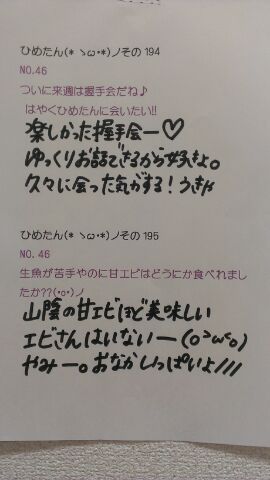 ひめたん(* ゝω・*)ノその194
NO.46
ついに来週は握手会だね♪
はやくひめたんに会いたい!!
楽しかった握手会ー♡
ゆっくりお話できるから好きよ。
久々に会った気がする!うきゃ
ひめたん(* ゝω・*)ノその195
NO.46
生魚が苦手やのに甘エビはどうにか食べれまし
たか??(・o・)ノ
山陰の甘エビほど美味しい
エビさんはいないー(o>ω<o)
やみー。おなかしっぱいよ///